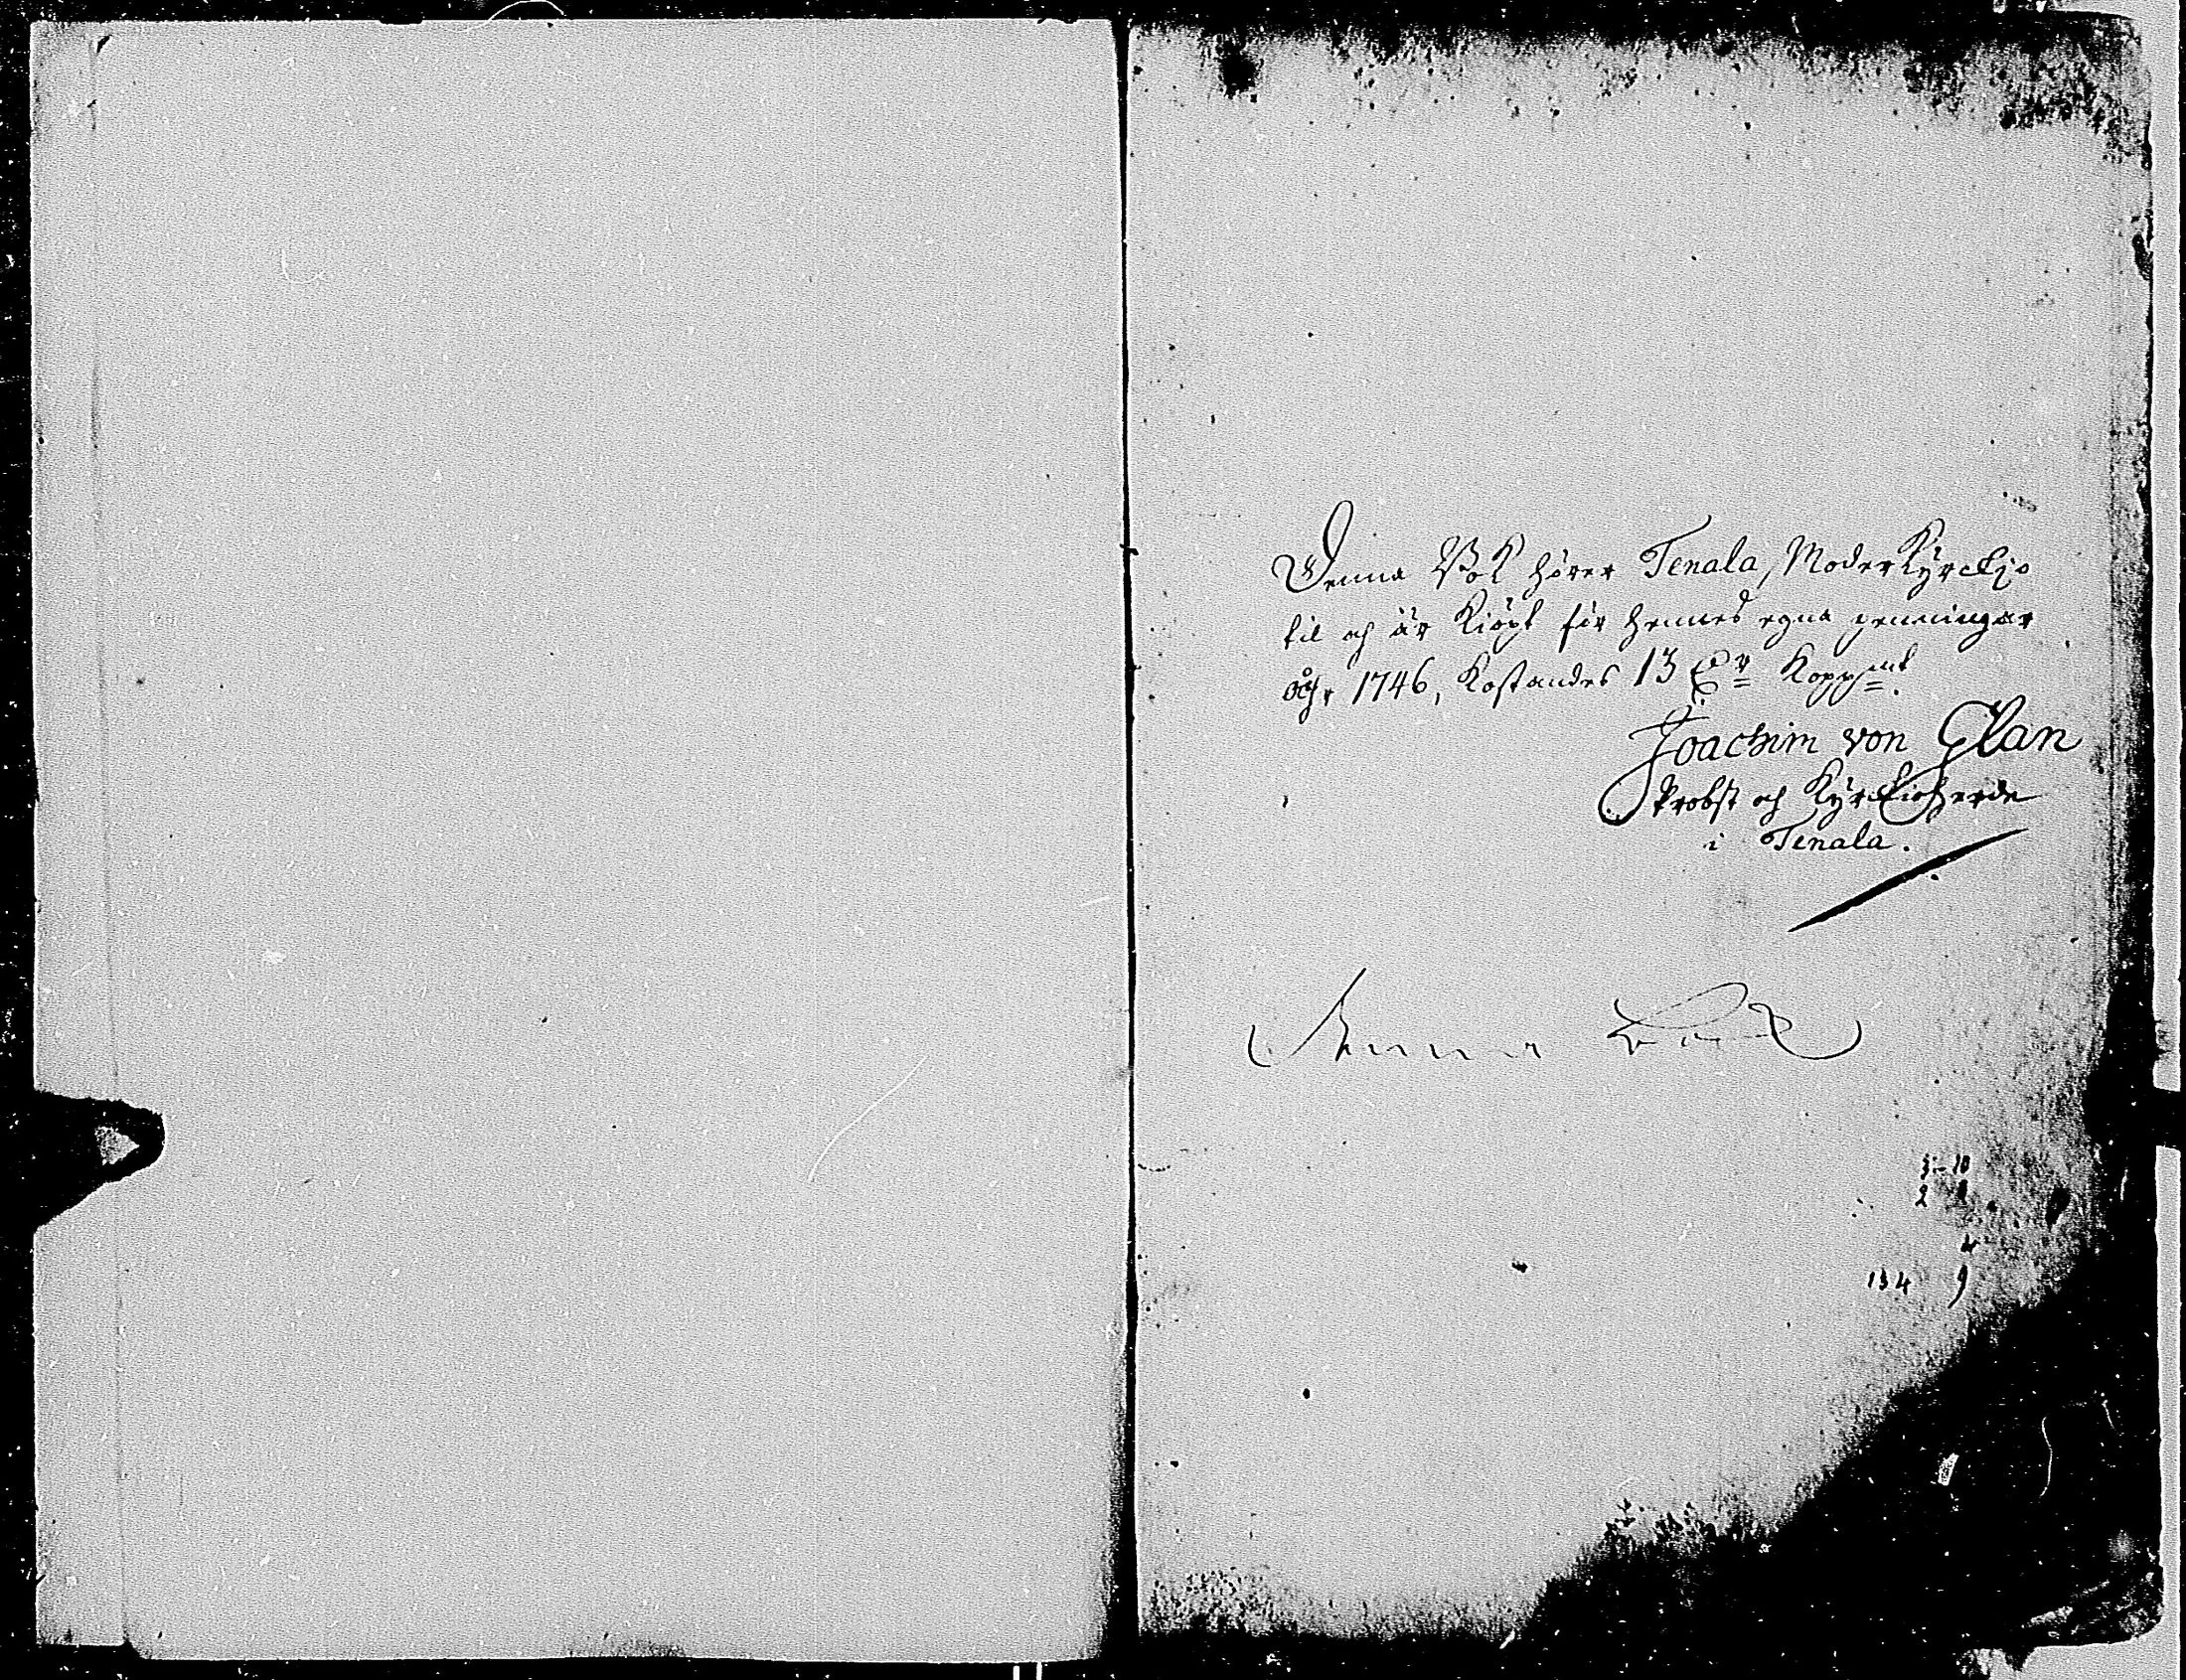 Denna Bok hörer Tenala, ModerKyrckjo
til och är Kiöpt för hennes egna penningar
åhr 1746, Kostandes 13 Dr Kopp:mt.
Joachim von Glan
Probst och Kyrckioherde
i Tenala.
Denna Bok
3 - 10
2
4
134 9